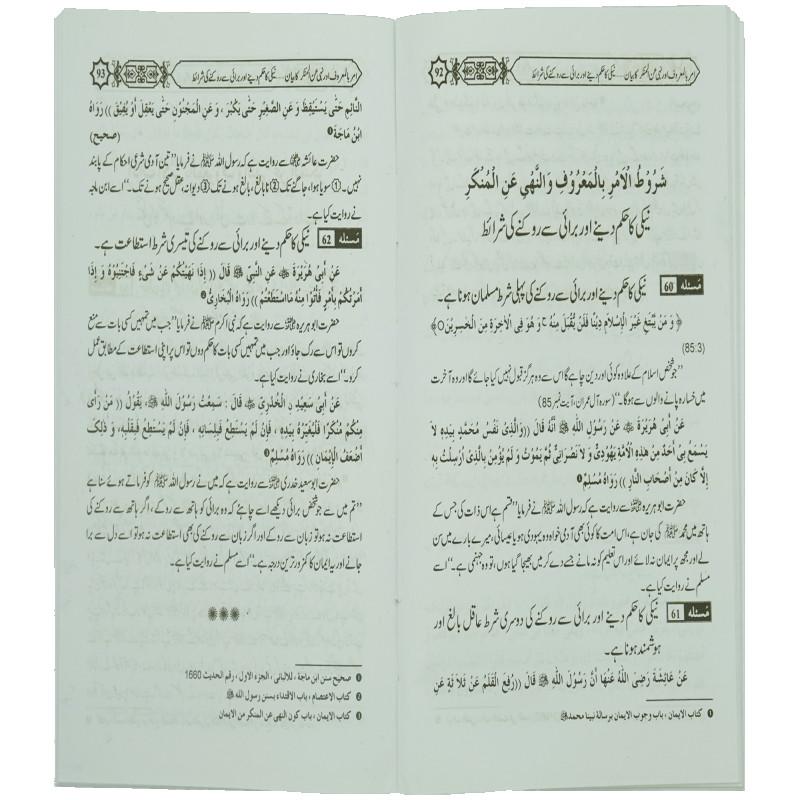 امر بالمعروف اور نہی عن المنکر کا بیان.... نیکی کا حکم دینے اور برائی سے روکنے کی شرائط
92
شُرُوْطُ الْاَمْرِ بِالْمَعْرُوْفِ وَالنَّهْىِ عَنِ الْمُنْكَرِ
نیکی کا حکم دینے اور برائی سے روکنے کی شرائط
مسئلہ 60 نیکی کا حکم دینے اور برائی سے روکنے کی پہلی شرط مسلمان ہونا ہے۔
﴿ وَ مَنْ يَّبْتَغِ غَيْرَ الْاِسْلَامِ دِيْنًا فَلَنْ يُّقْبَلَ مِنْهُ ج وَ هُوَ فِى الْاٰخِرَةِ مِنَ الْخٰسِرِيْنَ ○﴾
(85:3)
”جو شخص اسلام کے علاوہ کوئی اور دین چاہے گا اس سے وہ ہرگز قبول نہیں کیا جائے گا اور وہ آخرت
میں خسارہ پانے والوں سے ہوگا۔“ (سورہ آل عمران، آیت نمبر 85)
عَنْ أَبِىْ هُرَيْرَةَ ﷛ عَنْ رَسُوْلِ اللّٰهِ ﷺ أَنَّهُ قَالَ ((وَالَّذِىْ نَفْسُ مُحَمَّدٍ بِيَدِهِ لاَ
يَسْمَعُ بِىْ أَحَدٌ مِنْ هٰذِهِ الْاُمَّةِ يَهُوْدِىٌّ وَ لَا نَصْرَانِىٌّ ثُمَّ يَمُوْتُ وَ لَمْ يُؤْمِنْ بِالَّذِىْ اُرْسِلْتُ بِهِ
إِلَّا كَانَ مِنْ أَصْحَابِ النَّارِ)) رَوَاهُ مُسْلِمٌ❶
حضرت ابوہریرہ ﷛ سے روایت ہے کہ رسول اللہ ﷺ نے فرمایا ”قسم ہے اس ذات کی جس کے
ہاتھ میں محمد ﷺ کی جان ہے، اس امت کا کوئی بھی آدمی خواہ وہ یہودی ہو یا عیسائی، میرے بارے میں سن
لے اور مجھ پر ایمان نہ لائے اور اس تعلیم کو نہ مانے جسے دے کر میں بھیجا گیا ہوں، تو وہ جہنمی ہے۔“ اسے
مسلم نے روایت کیا ہے۔
مسئلہ 61 نیکی کا حکم دینے اور برائی سے روکنے کی دوسری شرط عاقل بالغ اور
ہوشمند ہونا ہے۔
عَنْ عَائِشَةَ رَضِىَ اللّٰهُ عَنْهَا أَنَّ رَسُوْلَ اللّٰهِ ﷺ قَالَ ((رُفِعَ الْقَلَمُ عَنْ ثَلَاثَةٍ عَنِ
❶ كتاب الايمان ، باب وجوب الايمان برسالة نبينا محمد ﷺ
امر بالمعروف اور نہی عن المنکر کا بیان.... نیکی کا حکم دینے اور برائی سے روکنے کی شرائط
93
النَّائِمِ حَتّٰى يَسْتَيْقِظَ وَ عَنِ الصَّغِيْرِ حَتّٰى يَكْبُرَ ، وَ عَنِ الْمَجْنُوْنِ حَتّٰى يَعْقِلَ أَوْ يُفِيْقَ )) رَوَاهُ
ابْنُ مَاجَةَ❶ (صحيح)
حضرت عائشہ ﷞ سے روایت ہے کہ رسول اللہ ﷺ نے فرمایا ”تین آدمی شرعی احکام کے پابند
نہیں۔ ① سویا ہوا، جاگنے تک ② نابالغ، بالغ ہونے تک ③ دیوانہ، عقل صحیح ہونے تک۔“ اسے ابن ماجہ
نے روایت کیا ہے۔
مسئلہ 62 نیکی کا حکم دینے اور برائی سے روکنے کی تیسری شرط استطاعت ہے۔
عَنْ أَبِىْ هُرَيْرَةَ ﷛ عَنِ النَّبِيِّ ﷺ قَالَ ((إِذَا نَهَيْتُكُمْ عَنْ شَىْءٍ فَاجْتَنِبُوْهُ وَ إِذَا
أَمَرْتُكُمْ بِأَمْرٍ فَأْتُوْا مِنْهُ مَااسْتَطَعْتُمْ)) رَوَاهُ الْبُخَارِىُّ❷
حضرت ابوہریرہ ﷛ سے روایت ہے کہ نبی اکرم ﷺ نے فرمایا ”جب میں تمہیں کسی بات سے منع
کروں تو اس سے رک جاؤ اور جب میں تمہیں کسی بات کا حکم دوں تو اس پر اپنی استطاعت کے مطابق عمل
کرو۔“ اسے بخاری نے روایت کیا ہے۔
عَنْ أَبِىْ سَعِيْدٍ نِ الْخُدْرِىِّ ﷛ قَالَ : سَمِعْتُ رَسُوْلَ اللّٰهِ ﷺ، يَقُوْلُ ((مَنْ رَأٰى
مِنْكُمْ مُنْكَرًا فَلْيُغَيِّرْهُ بِيَدِهِ ، فَإِنْ لَمْ يَسْتَطِعْ فَبِلِسَانِهِ ، فَإِنْ لَمْ يَسْتَطِعْ فَبِقَلْبِهِ، وَ ذٰلِكَ
أَضْعَفُ الْإِيْمَانِ )) رَوَاهُ مُسْلِمٌ❸
حضرت ابوسعید خدری ﷛ سے روایت ہے کہ میں نے رسول اللہ ﷺ کو فرماتے ہوئے سنا ہے
”تم میں سے جو شخص برائی دیکھے اسے چاہئے کہ وہ برائی کو ہاتھ سے روکے، اگر ہاتھ سے روکنے کی
استطاعت نہ ہو تو زبان سے روکے اور اگر زبان سے روکنے کی بھی استطاعت نہ ہو تو اسے دل سے برا
جانے اور یہ ایمان کا کمزور ترین درجہ ہے۔“ اسے مسلم نے روایت کیا ہے۔
❶ صحيح سنن ابن ماجة ، للالبانى ، الجزء الاول ، رقم الحديث 1660
❷ كتاب الاعتصام ، باب الاقتداء بسنن رسول الله ﷺ
❸ كتاب الايمان ، باب كون النهى عن المنكر من الايمان